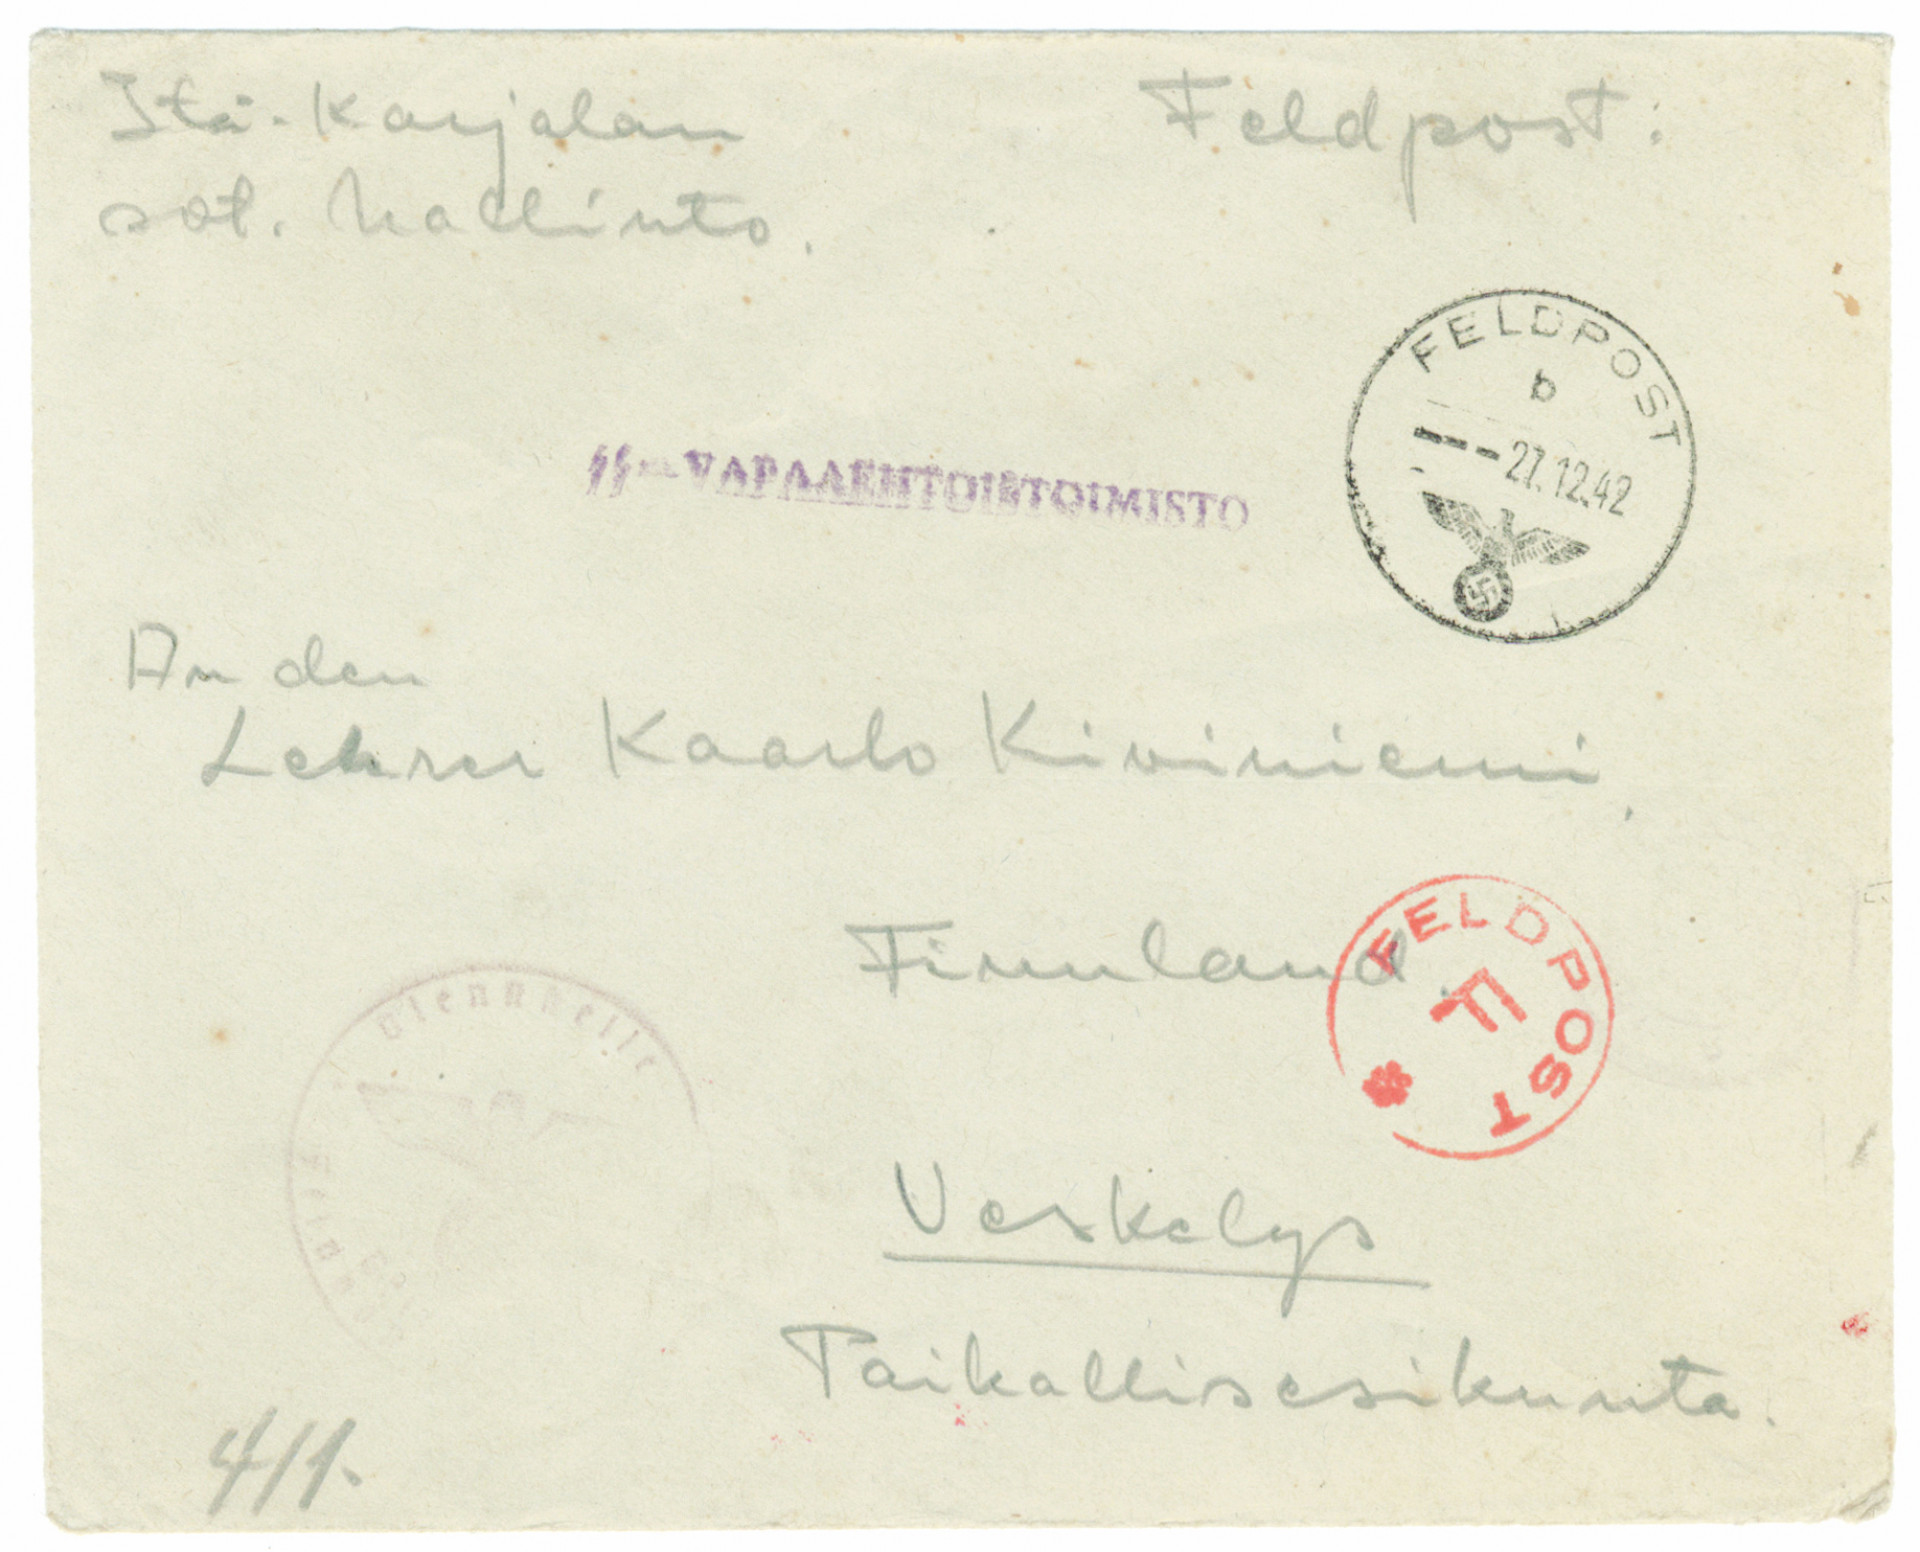 Itä-Karjalan
sot. hallinto.
Feldpost:
FELDPOST
b
27.12.42
SS-VAPAAEHTOISTOIMISTO
An den
Lehrer Kaarlo Kiviniemi,
Finnland.
FELDPOST
F
Dienststelle
Veskelys
Paikallisesikunta.
4/1.